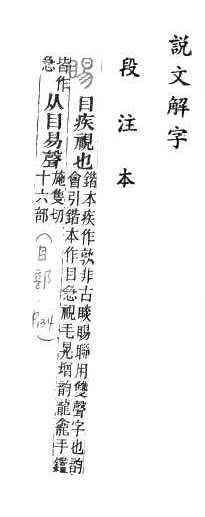 說文解字
段注本
䁑目疾視也
鍇本疾作孰非古睒䁑聯用雙聲字也韵
會引鍇本作目急視毛晃增韵龍龕手鑑
皆作
急
从目易聲
施隻切
十六部
(目部 P.134)